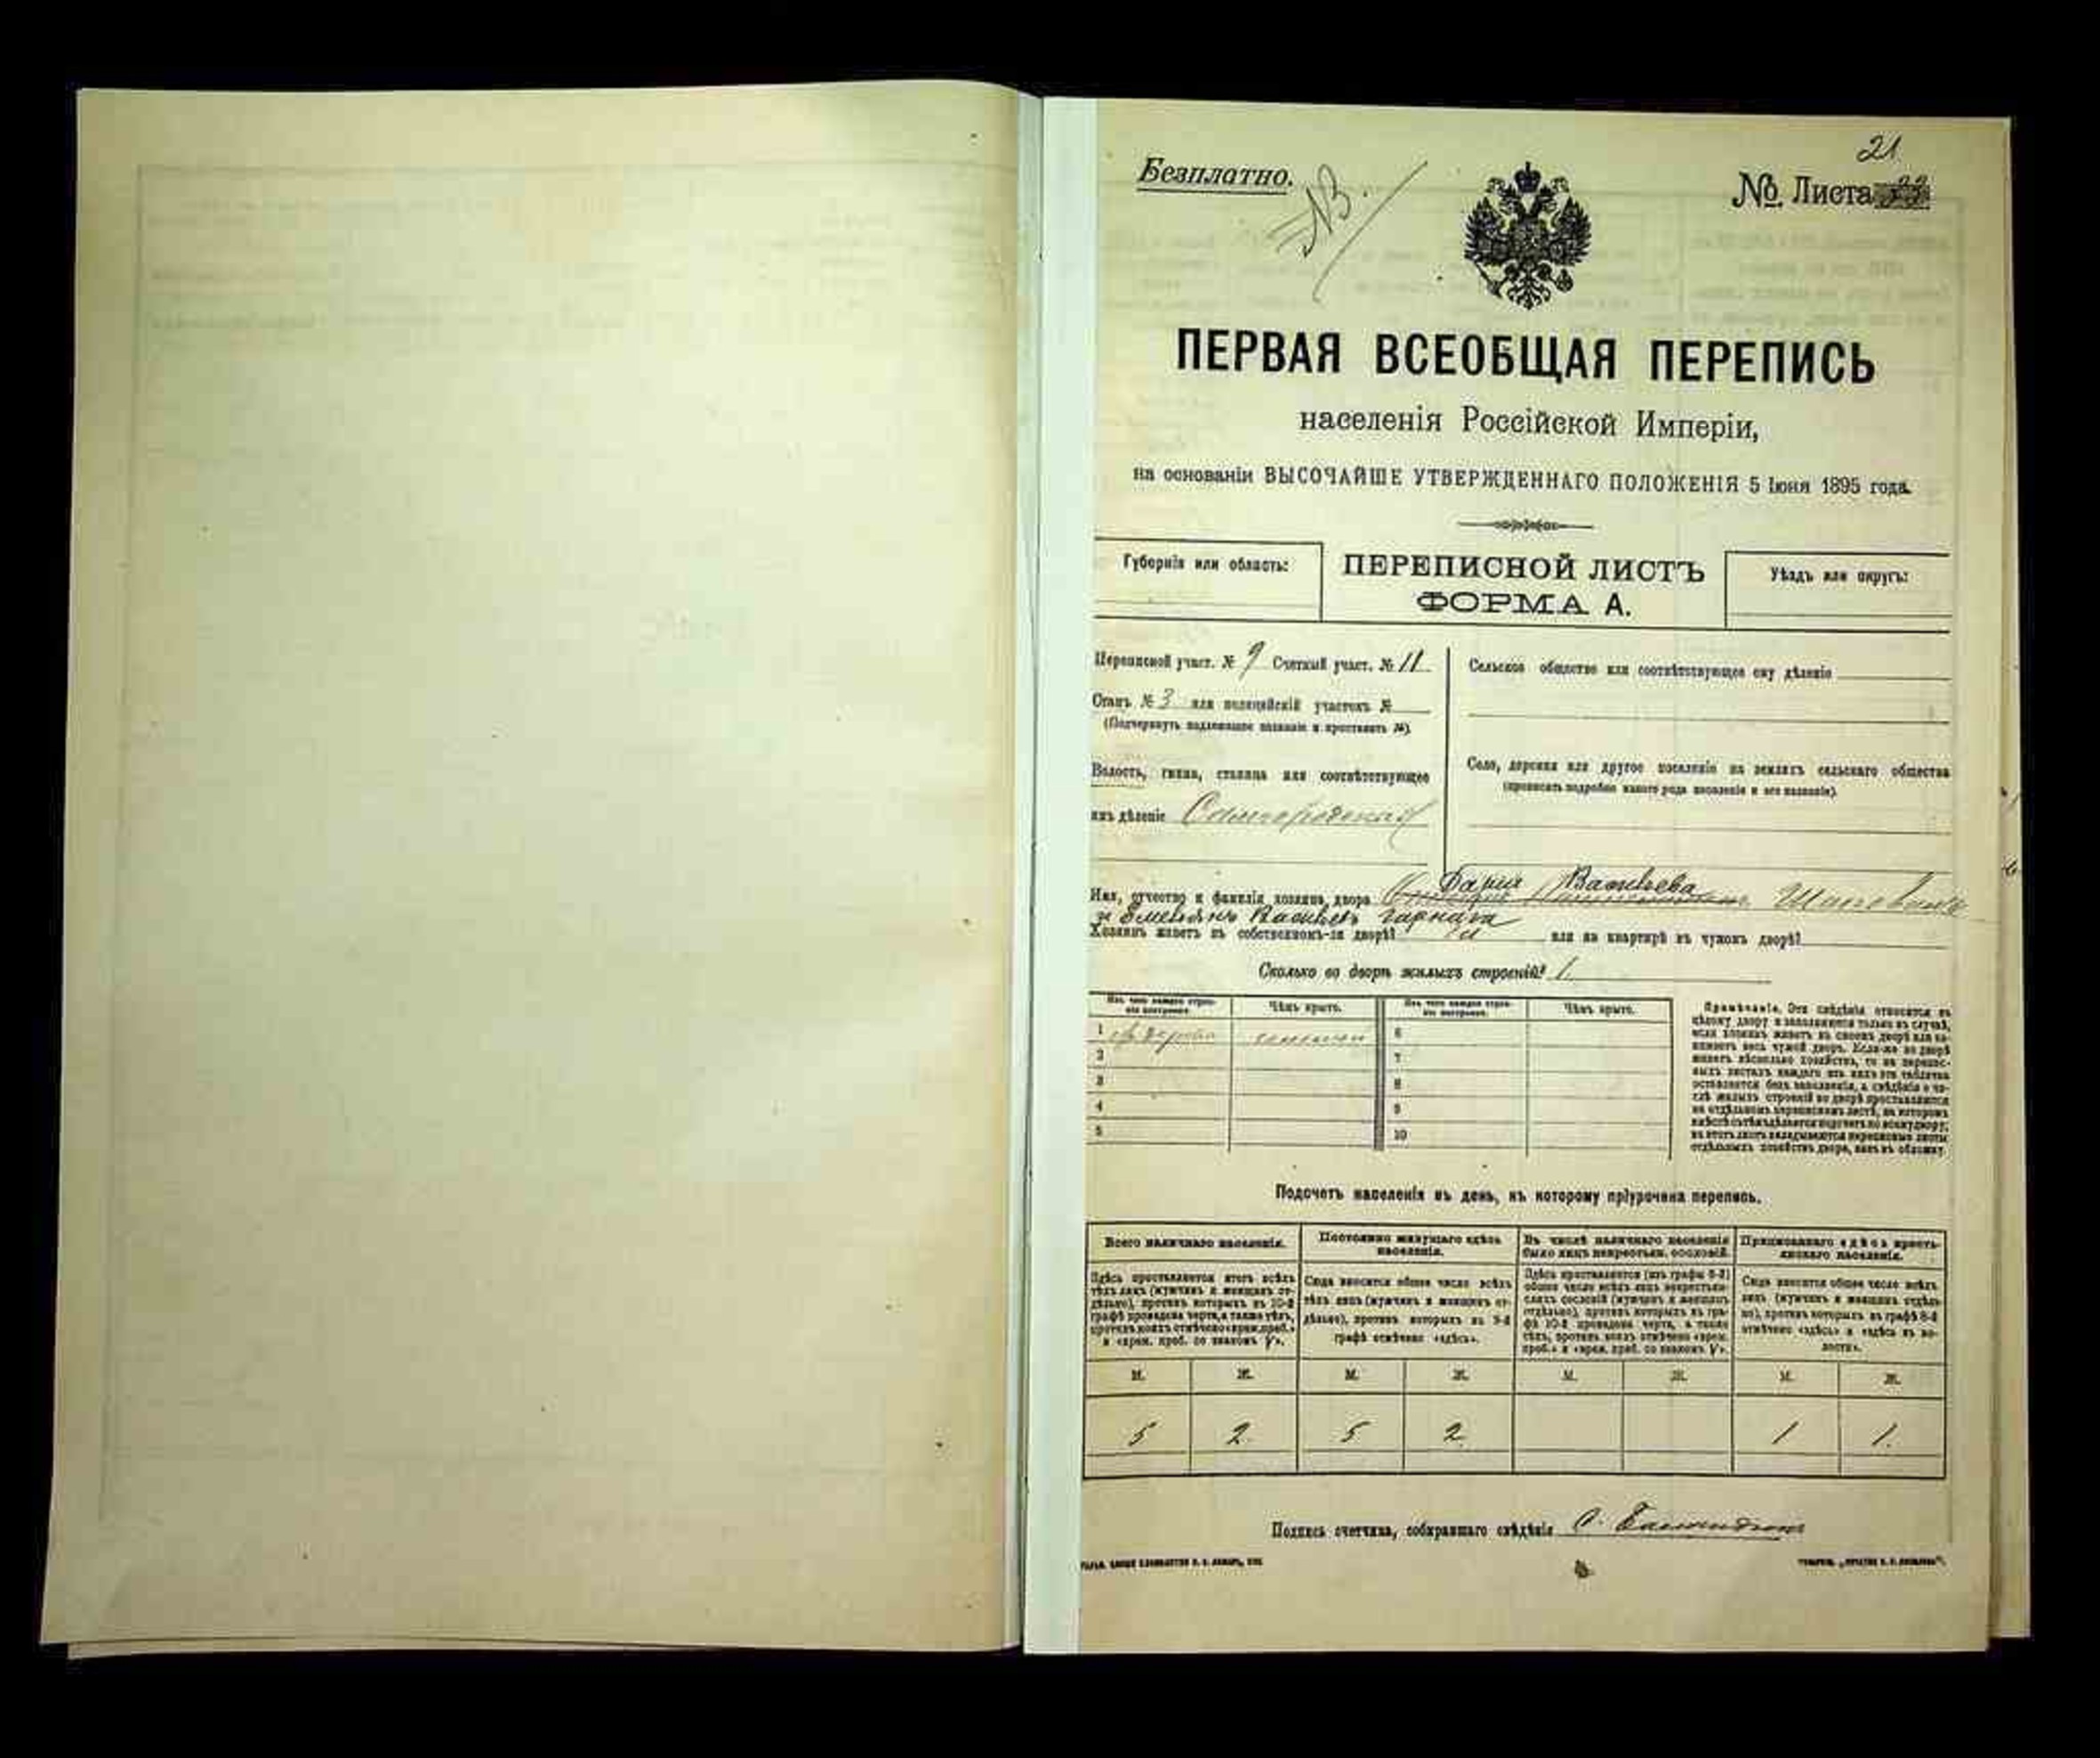 21
Безплатно.
№ Листа
ПЕРВАЯ ВСЕОБЩАЯ ПЕРЕПИСЬ
населенія Россійской Имперіи,
на основаніи ВЫСОЧАЙШЕ УТВЕРЖДЕННАГО ПОЛОЖЕНІЯ 5 Іюня 1895 года.
Губернія или область:
ПЕРЕПИСНОЙ ЛИСТЪ
ФОРМА А.
Уѣздъ или округъ:
Переписной участ. № 9 Счетный участ. № 11
Станъ № 3 или полицейскій участокъ №
(Подчеркнуть надлежащее названіе и проставить №).
Волость, гмина, станица или соотвѣтствующее
имъ дѣленіе
Сельское общество или соотвѣтствующее ему дѣленіе
Село, деревня или другое поселеніе на земляхъ сельскаго общества
(прописать подробно какого рода поселеніе и его названіе).
Дарья Васильева
Имя, отчество и фамилія хозяина двора
и Емельянъ Васильевъ
Хозяинъ живетъ въ собственномъ-ли дворѣ? или на квартирѣ въ чужомъ дворѣ?
Сколько во дворѣ жилыхъ строеній? 1.
Изъ чего каждое строеніе построено.
Чѣмъ крыто.
Изъ чего каждое строеніе построено.
Чѣмъ крыто.
1 дерева соломой 6
2 7
3 8
4 9
5 10
Примѣчаніе. Эти свѣдѣнія относятся къ
цѣлому двору и заполняются только въ случаѣ,
если хозяинъ живетъ въ своемъ дворѣ или за-
нимаетъ весь чужой дворъ. Если-же во дворѣ
живетъ нѣсколько хозяйствъ, то на перепис-
ныхъ листахъ каждаго изъ нихъ эта табличка
оставляется безъ заполненія, а свѣдѣнія о чи-
слѣ жилыхъ строеній во дворѣ проставляются
на отдѣльномъ переписномъ листѣ, на которомъ
вмѣстѣ съ тѣмъ дѣлается подсчетъ по всему двору;
въ этотъ листъ вкладываются переписные листы
отдѣльныхъ хозяйствъ двора, какъ въ обложку.
Подсчетъ населенія въ день, къ которому пріурочена перепись.
Всего наличнаго населенія.
Постоянно живущаго здѣсь
населенія.
Въ числѣ наличнаго населенія
было лицъ некрестьян. сословій.
Приписаннаго здѣсь кресть-
янскаго населенія.
Здѣсь проставляется итогъ всѣхъ
тѣхъ лицъ (мужчинъ и женщинъ от-
дѣльно), противъ которыхъ въ 10-й
графѣ проведена черта, а также тѣхъ,
противъ коихъ отмѣчено «врем. преб.»
и «врем. преб. со знакомъ V».
Сюда вносится общее число всѣхъ
тѣхъ лицъ (мужчинъ и женщинъ от-
дѣльно), противъ которыхъ въ 9-й
графѣ отмѣчено «здѣсь».
Здѣсь проставляется (изъ графы 6-й)
общее число всѣхъ лицъ некрестьян-
скихъ сословій (мужчинъ и женщинъ
отдѣльно), противъ которыхъ въ гра-
фѣ 10-й проведена черта, а также
тѣхъ, противъ коихъ отмѣчено «врем.
преб.» и «врем. преб. со знакомъ V».
Сюда вносится общее число всѣхъ
лицъ (мужчинъ и женщинъ отдѣль-
но), противъ которыхъ въ графѣ 8-й
отмѣчено «здѣсь» и «здѣсь въ во-
лости».
М. Ж. М. Ж. М. Ж. М. Ж.
5 2 5 2 1 1.
Подпись счетчика, собиравшаго свѣдѣнія